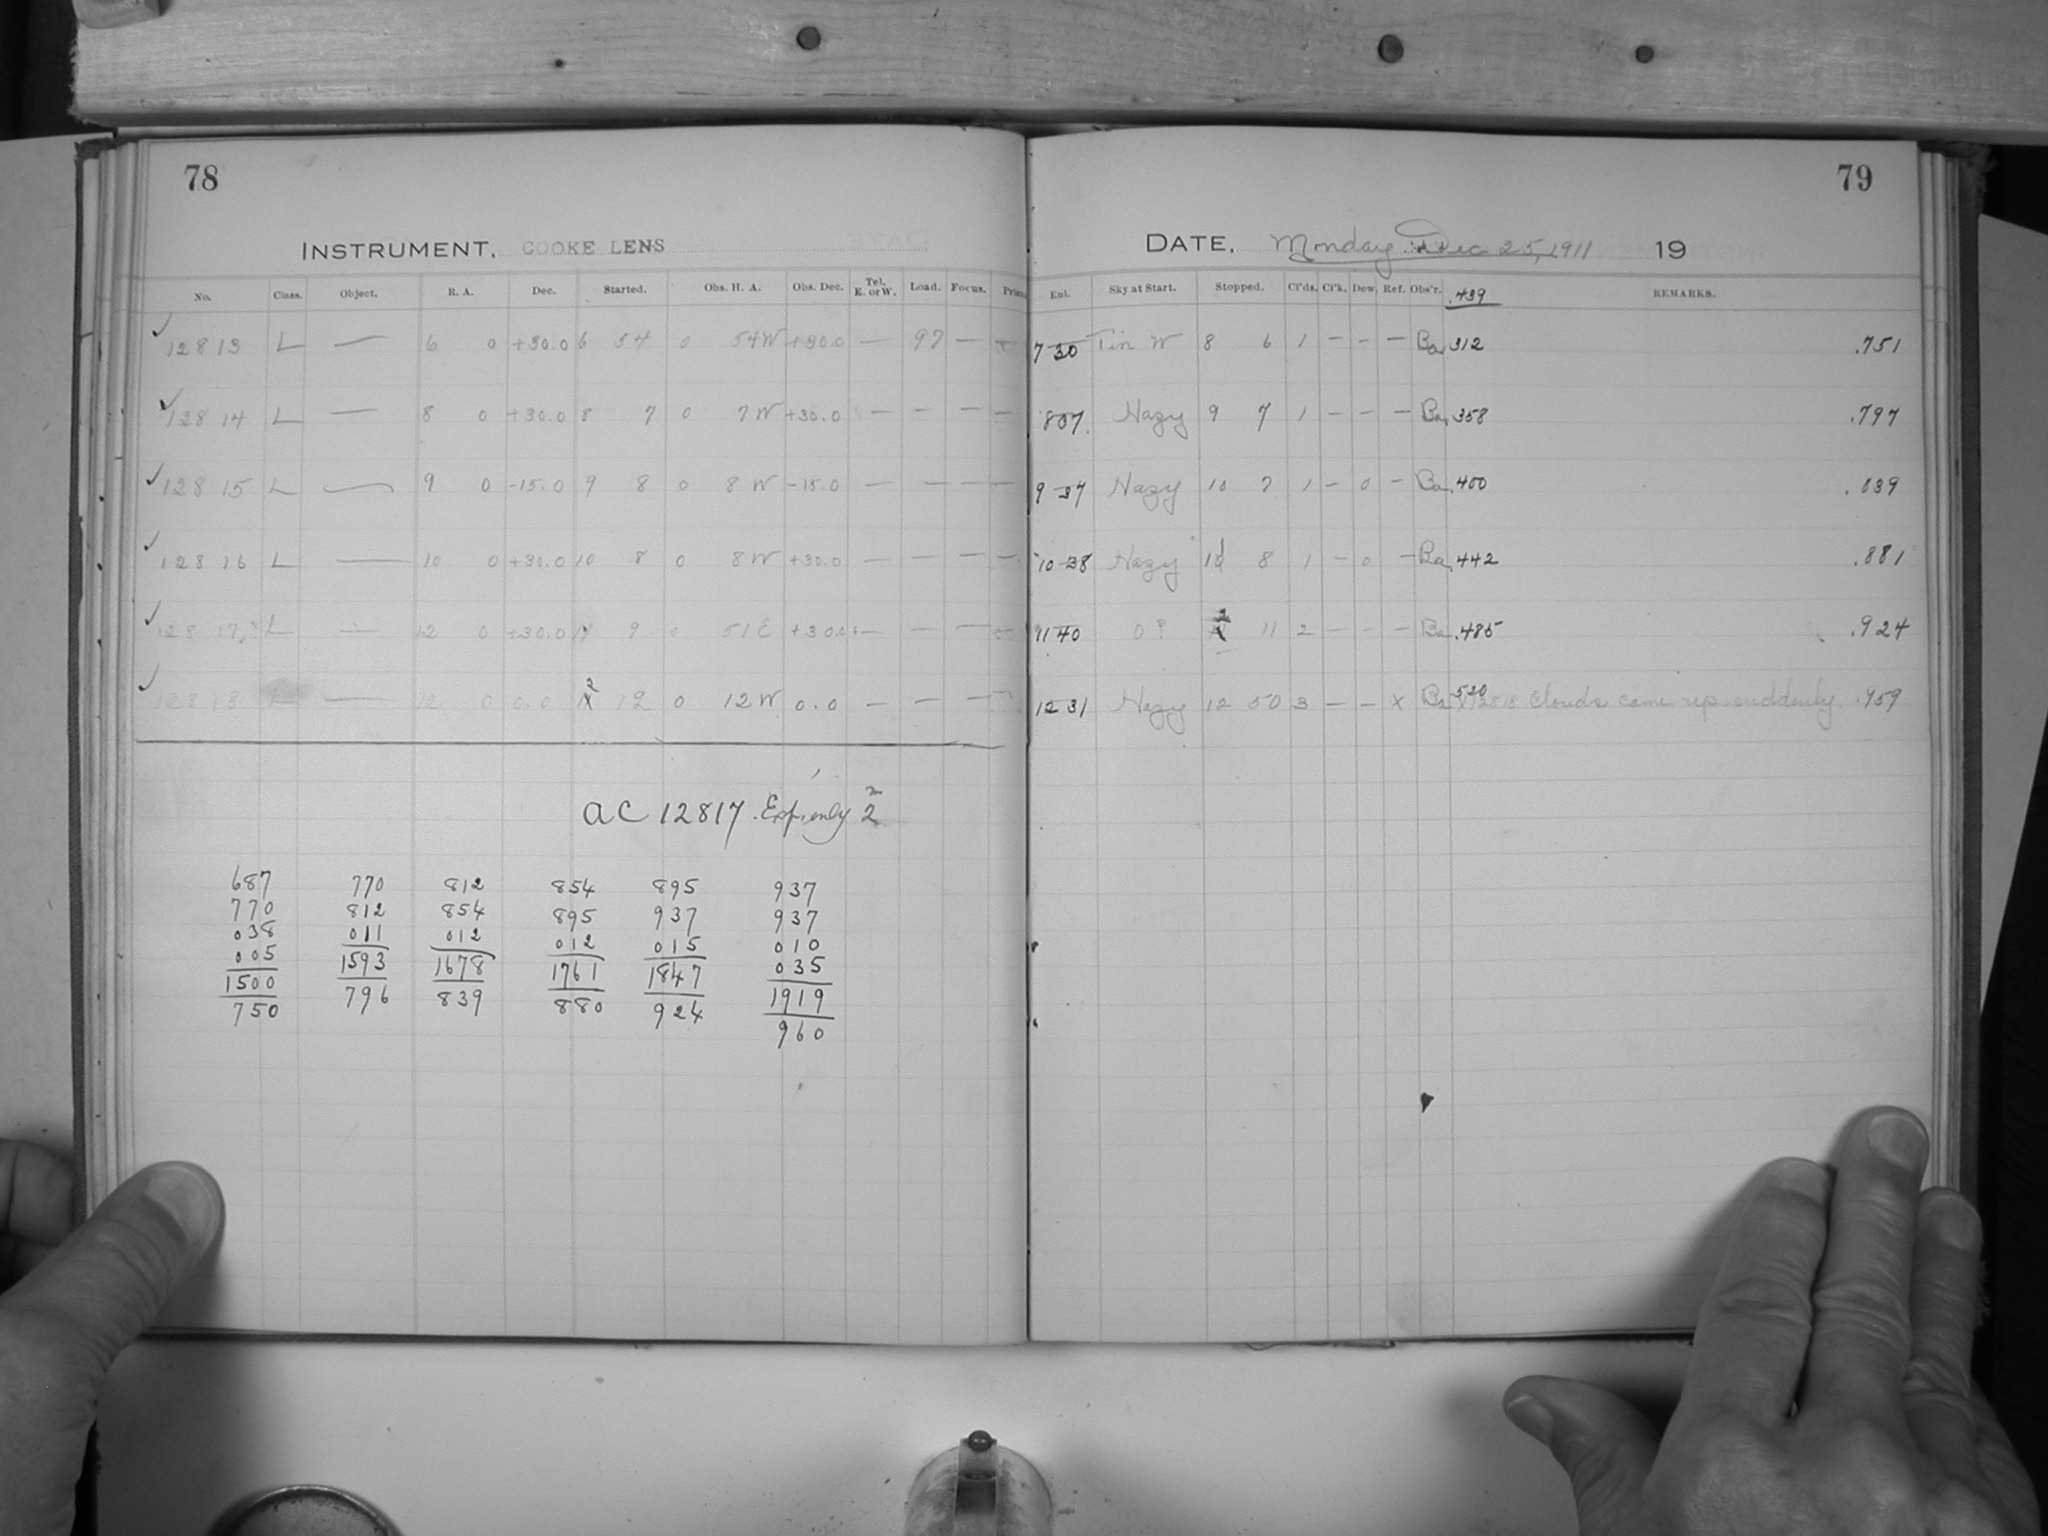 78
INSTRUMENT, COOKE LENS
No. Class. Object. R. A. Dec. Started. Obs. H. A. Obs. Dec. Tel. E. or W. Load. Focus.
✓ 12813 L — 6 0 +30.0 6 54 0 54W +30.0 — 97 —
✓ 12814 L — 8 0 +30.0 8 7 0 7W +30.0 — — — —
✓ 12815 L — 9 0 -15.0 9 8 0 8W -15.0 — — — —
✓ 12816 L — 10 0 +30.0 10 8 0 8W +30.0 — — — —
✓ 12817 L — 12 0 +30.0 9 0 51E +30.0 —
✓ 12818 — 12 0 0.0 12 12 0 12W 0.0 — — —
AC 12817. Exp. only 2m
687 770 812 854 895 937
770 812 854 895 937 937
038 011 012 012 015 010
005 1593 1678 1761 1847 035
1500 796 839 880 924 1919
750 960
79
DATE, Monday Dec 25, 1911 19
Enl. Sky at Start. Stopped. Cl'ds. Cl'k. Dew. Ref. Obs'r. .439 REMARKS.
7 30 Tin W 8 6 1 — — — Ba 312 .751
8 07 Hazy 9 7 1 — — — Ba 358 .797
9 37 Hazy 10 7 1 — 0 — Ba .400 .839
10 38 Hazy 11 8 1 — 0 — Ba 442 .881
11 40 0? 12 11 2 — — — Ba .485 .924
12 31 Hazy 12 50 3 — — x Ba 520 x 12818 Clouds came up suddenly. .959